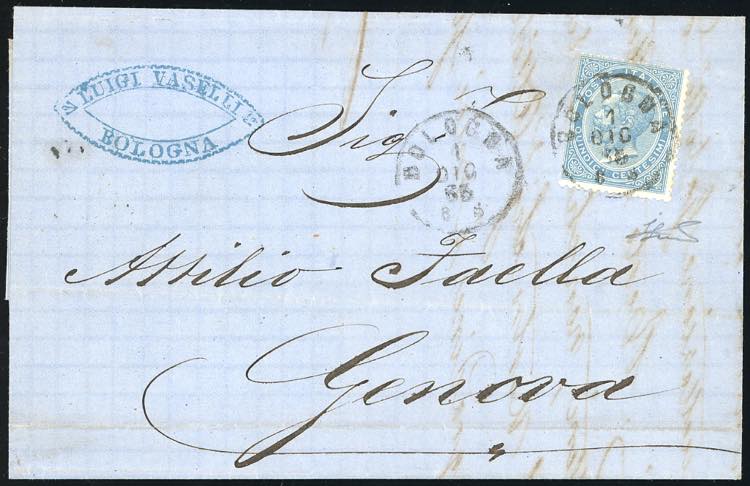 LUIGI VASELLI
BOLOGNA
Sig.r
BOLOGNA
1
DIC
65
8 S
BOLOGNA
1
DIC
65
8 S
QUINDICI CENTESIMI
Attilio Faella
Genova